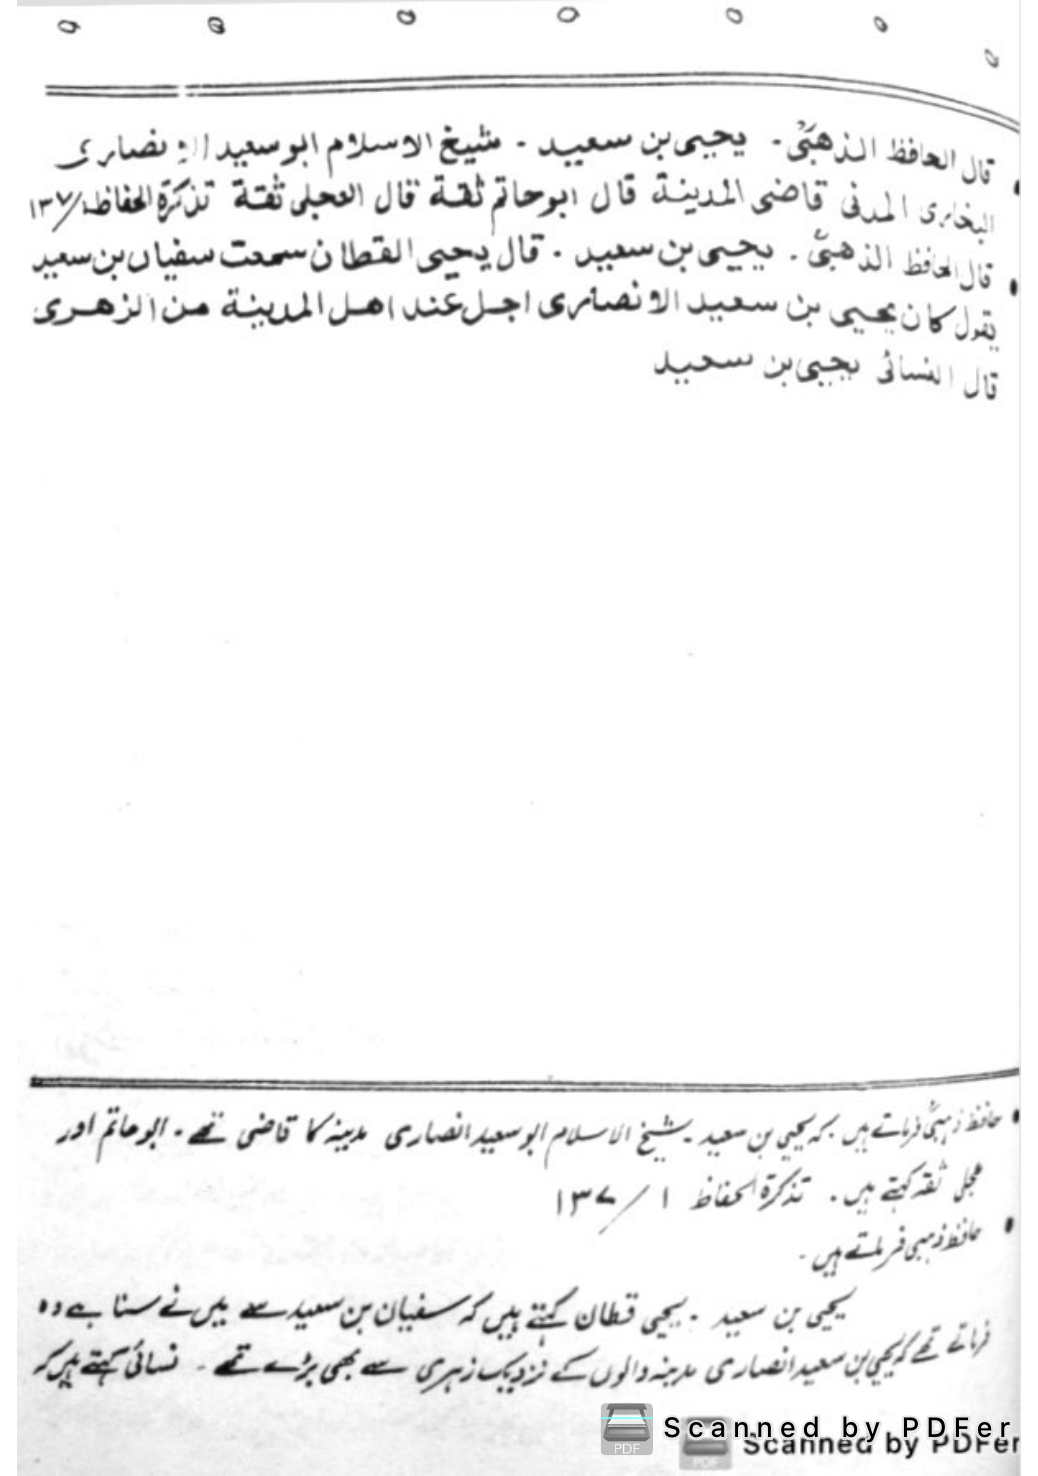 قال الحافظ الذهبیؒ - یحیی بن سعید - شیخ الاسلام ابو سعید الانصاری
البخاری المدنی قاضی المدینة قال ابوحاتم ثقة قال العجلی ثقة تذکرة الحفاظ ۱/۱۳۷
قال الحافظ الذهبیؒ - یحیی بن سعید - قال یحیی القطان سمعت سفیان بن سعید
یقول کان یحیی بن سعید الانصاری اجل عند اهل المدینة من الزهری
قال النسائی یحیی بن سعید
حافظ ذہبیؒ فرماتے ہیں کہ یحیی بن سعید - شیخ الاسلام ابو سعید انصاری مدینہ کا قاضی تھے - ابو حاتم اور
عجلی ثقہ کہتے ہیں - تذکرۃ الحفاظ ۱/۱۳۷
حافظ ذہبی فرماتے ہیں -
یحیی بن سعید - یحیی قطان کہتے ہیں کہ سفیان بن سعید سے میں نے سنا ہے وہ
فرماتے تھے کہ یحیی بن سعید انصاری مدینہ والوں کے نزدیک زہری سے بھی بڑے تھے - نسائی کہتے ہیں کہ
Scanned by PDFer
Scanned by PDFer